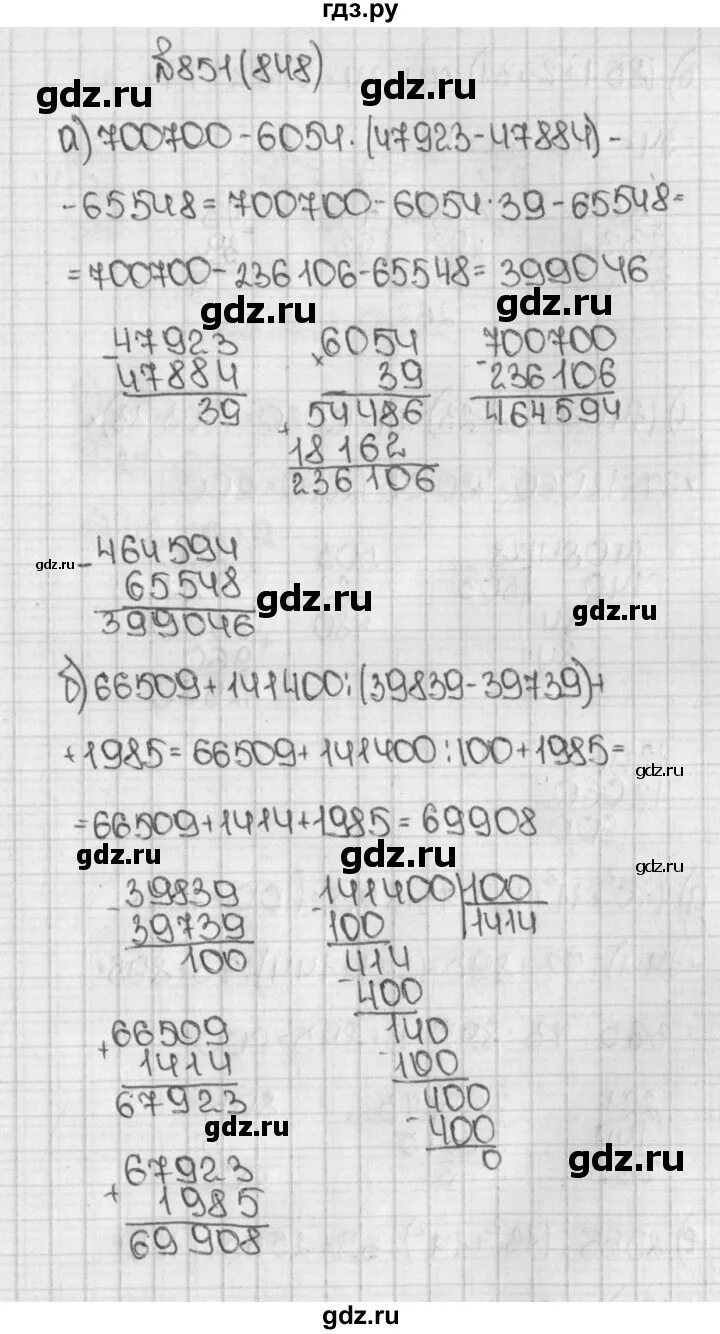 гдз.ру
№851(848)
gdz.ru
gdz.ru
а) 700700-6054·(47923-47884)-
-65548=700700-6054·39-65548=
=700700-236106-65548=399046
gdz.ru
gdz.ru
-47923
47884
39
×6054
39
+54486
18162
236106
700700
-236106
464594
gdz.ru
-464594
65548
399046
gdz.ru
gdz.ru
б) 66509+141400:(39839-39739)+
+1985=66509+141400:100+1985=
gdz.ru
=66509+1414+1985=69908
gdz.ru
gdz.ru
gdz.ru
-39839
39739
100
-141400|100
100 |1414
414
-400
140
-100
400
-400
0
+66509
1414
67923
gdz.ru
+67923
1985
69908
gdz.ru
gdz.ru